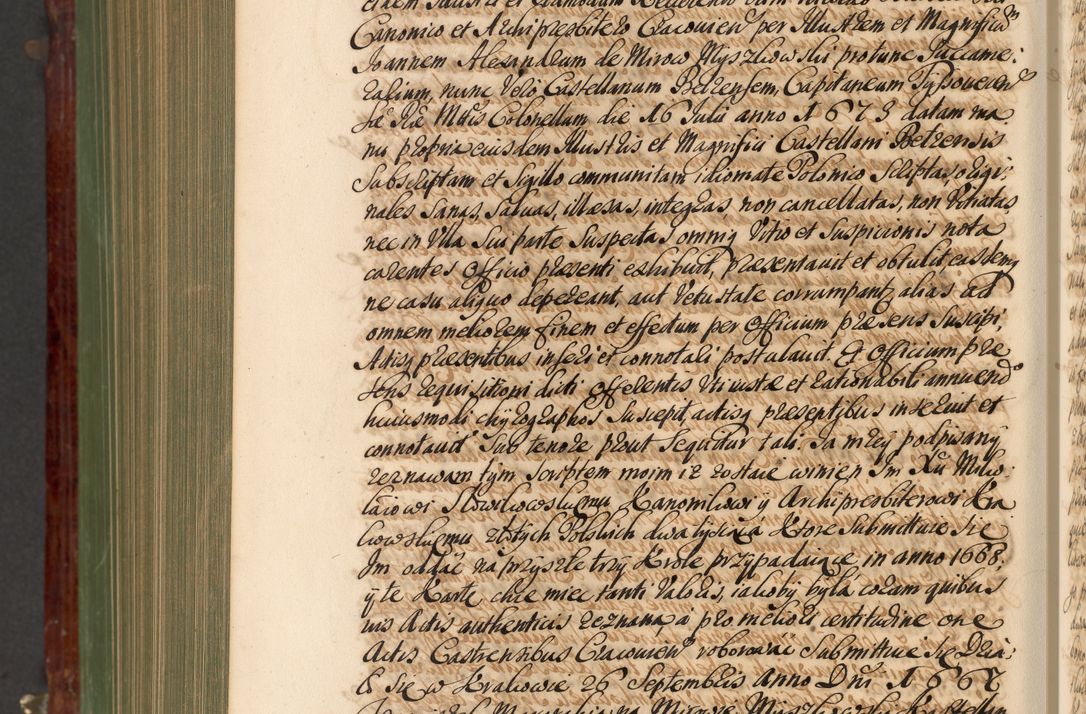 Canonico et Archipresbitero Cracovien per Illustrem et Magnificum
Joannem Alexandrum de Mirow Myszkowski pro tunc Succame:
rarium, nunc vero Castellanum Belzensem, Capitaneum Tyszovecen
Sae Rae Mttis Colonellum die 16 Julii anno 1673 datam ma
nu propria eiusdem Illustris et Magnifici Castellani Belzensis
Subscriptam et Sigillo communitam idiomate Polonico Scriptas, origi:
nales Sanas, Salvas, illaesas, integras non cancellatas, non Vitiatas
nec in Ulla Sui parte Suspectas, omniq Vitio et Suspicionis nota
carentes Officio praesenti exhibuit, praesentavit et obtulit easdemq
ne casu aliquo depereant, aut Vetustate corrumpant, alias ad
omnem meliorem finem et effectum per Officium praesens Suscipi,
Actisq praesentibus inseri et connotari postulavit. Et Officium prae
sens requisitioni dicti Offerentis Uti iustae et rationabili annuendo
huiusmodi chyrographos Suscepit, actisq praesentibus inseruit et
connotavit Sub tenore prout Sequitur tali. Ja nizey podpisany
zeznawam tym Scriptem moim iz zostaie winien Jm Xu Miko
laiowi Slowikowskiemu Kanonikowi y Archipresbiterowi Kra
kowskiemu zlotych Polskich dwa tysiąca Ktore Submittuie Sie
Jm oddac na przyszle trzy Krole przypadaiące in anno 1668.
y te Karte chce miec tanti Valoris, iakoby byla coram quibus
vis Actis authenticis zeznana, a pro meliori certitudine one
Actis Castrensibus Cracovien roborowac Submittuie Sie Dzia:
lo Sie w Krakowie 26 Septembris Anno Dni 1667